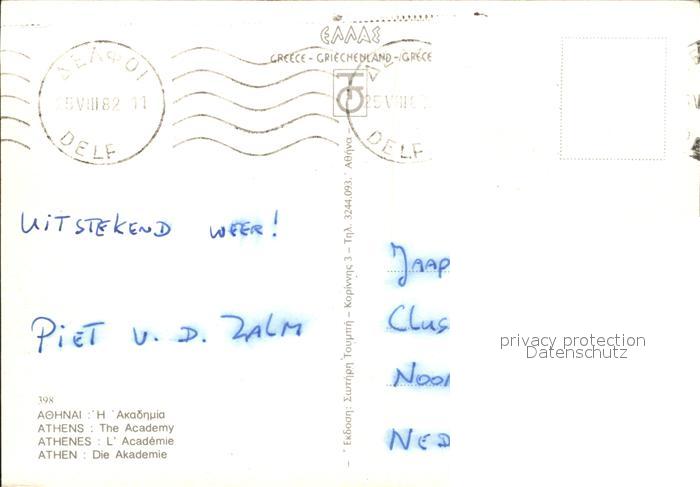 ΕΛΛΑΣ
GREECE - GRIECHENLAND - GRÈCE
ΔΕΛΦΟΙ
25 VIII 82 11
DELF
25 VIII 8
DELF
UITSTEKEND WEER!
PIET V. D. ZALM
398
ΑΘΗΝΑΙ : Ἡ Ἀκαδημία
ATHENS : The Academy
ATHENES : L' Académie
ATHEN : Die Akademie
Ἔκδοση: Σωτήρη Τουμπῆ – Κορίννης 3 – Τηλ. 3244.093, Ἀθήνα –
JAAP
Clus
NOO
NED
privacy protection
Datenschutz